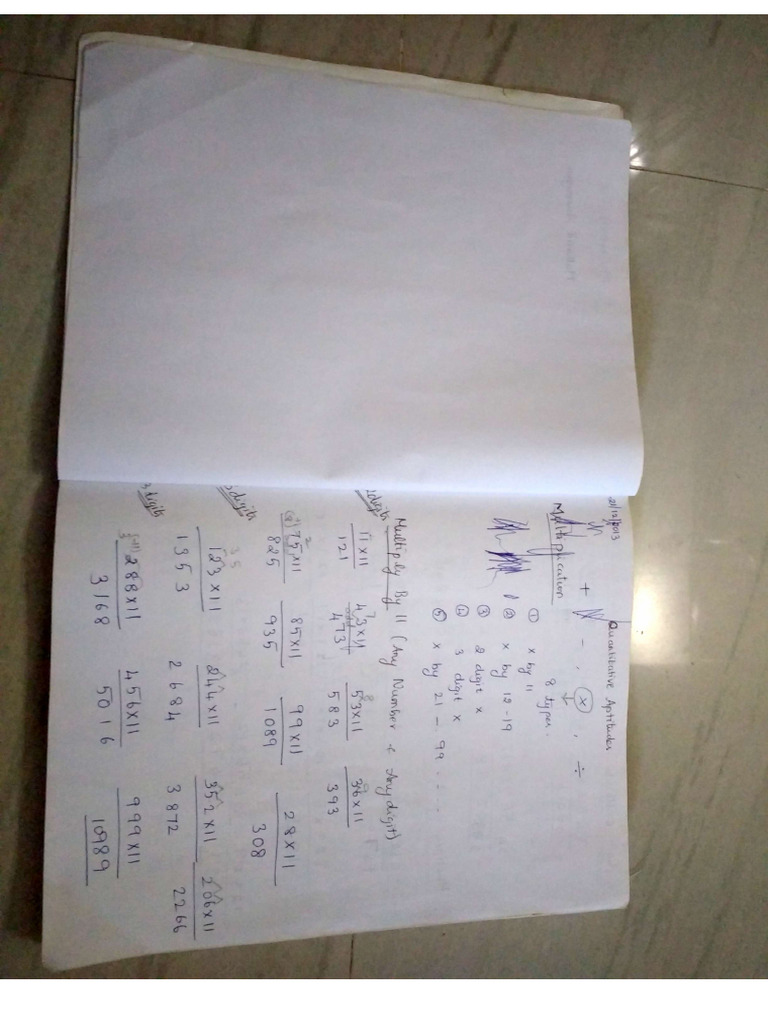 Quantitative Aptitudes
+ - , × , ÷
8 types.
Multiplication
① x by 11
② x by 12-19
③ 2 digit x
④ 3 digit x
⑤ x by 21 - 99 - - -
Multiply By 11 (Any Number & Any digit)
2 digits 11×11 43×11 53×11 36×11
121 473 583 393
75×11 85×11 99×11 28×11
825 935 1089 308
3 digits 123×11 244×11 352×11 206×11
1353 2684 3872 2266
3 digits 288×11 456×11 999×11
3168 5016 10989